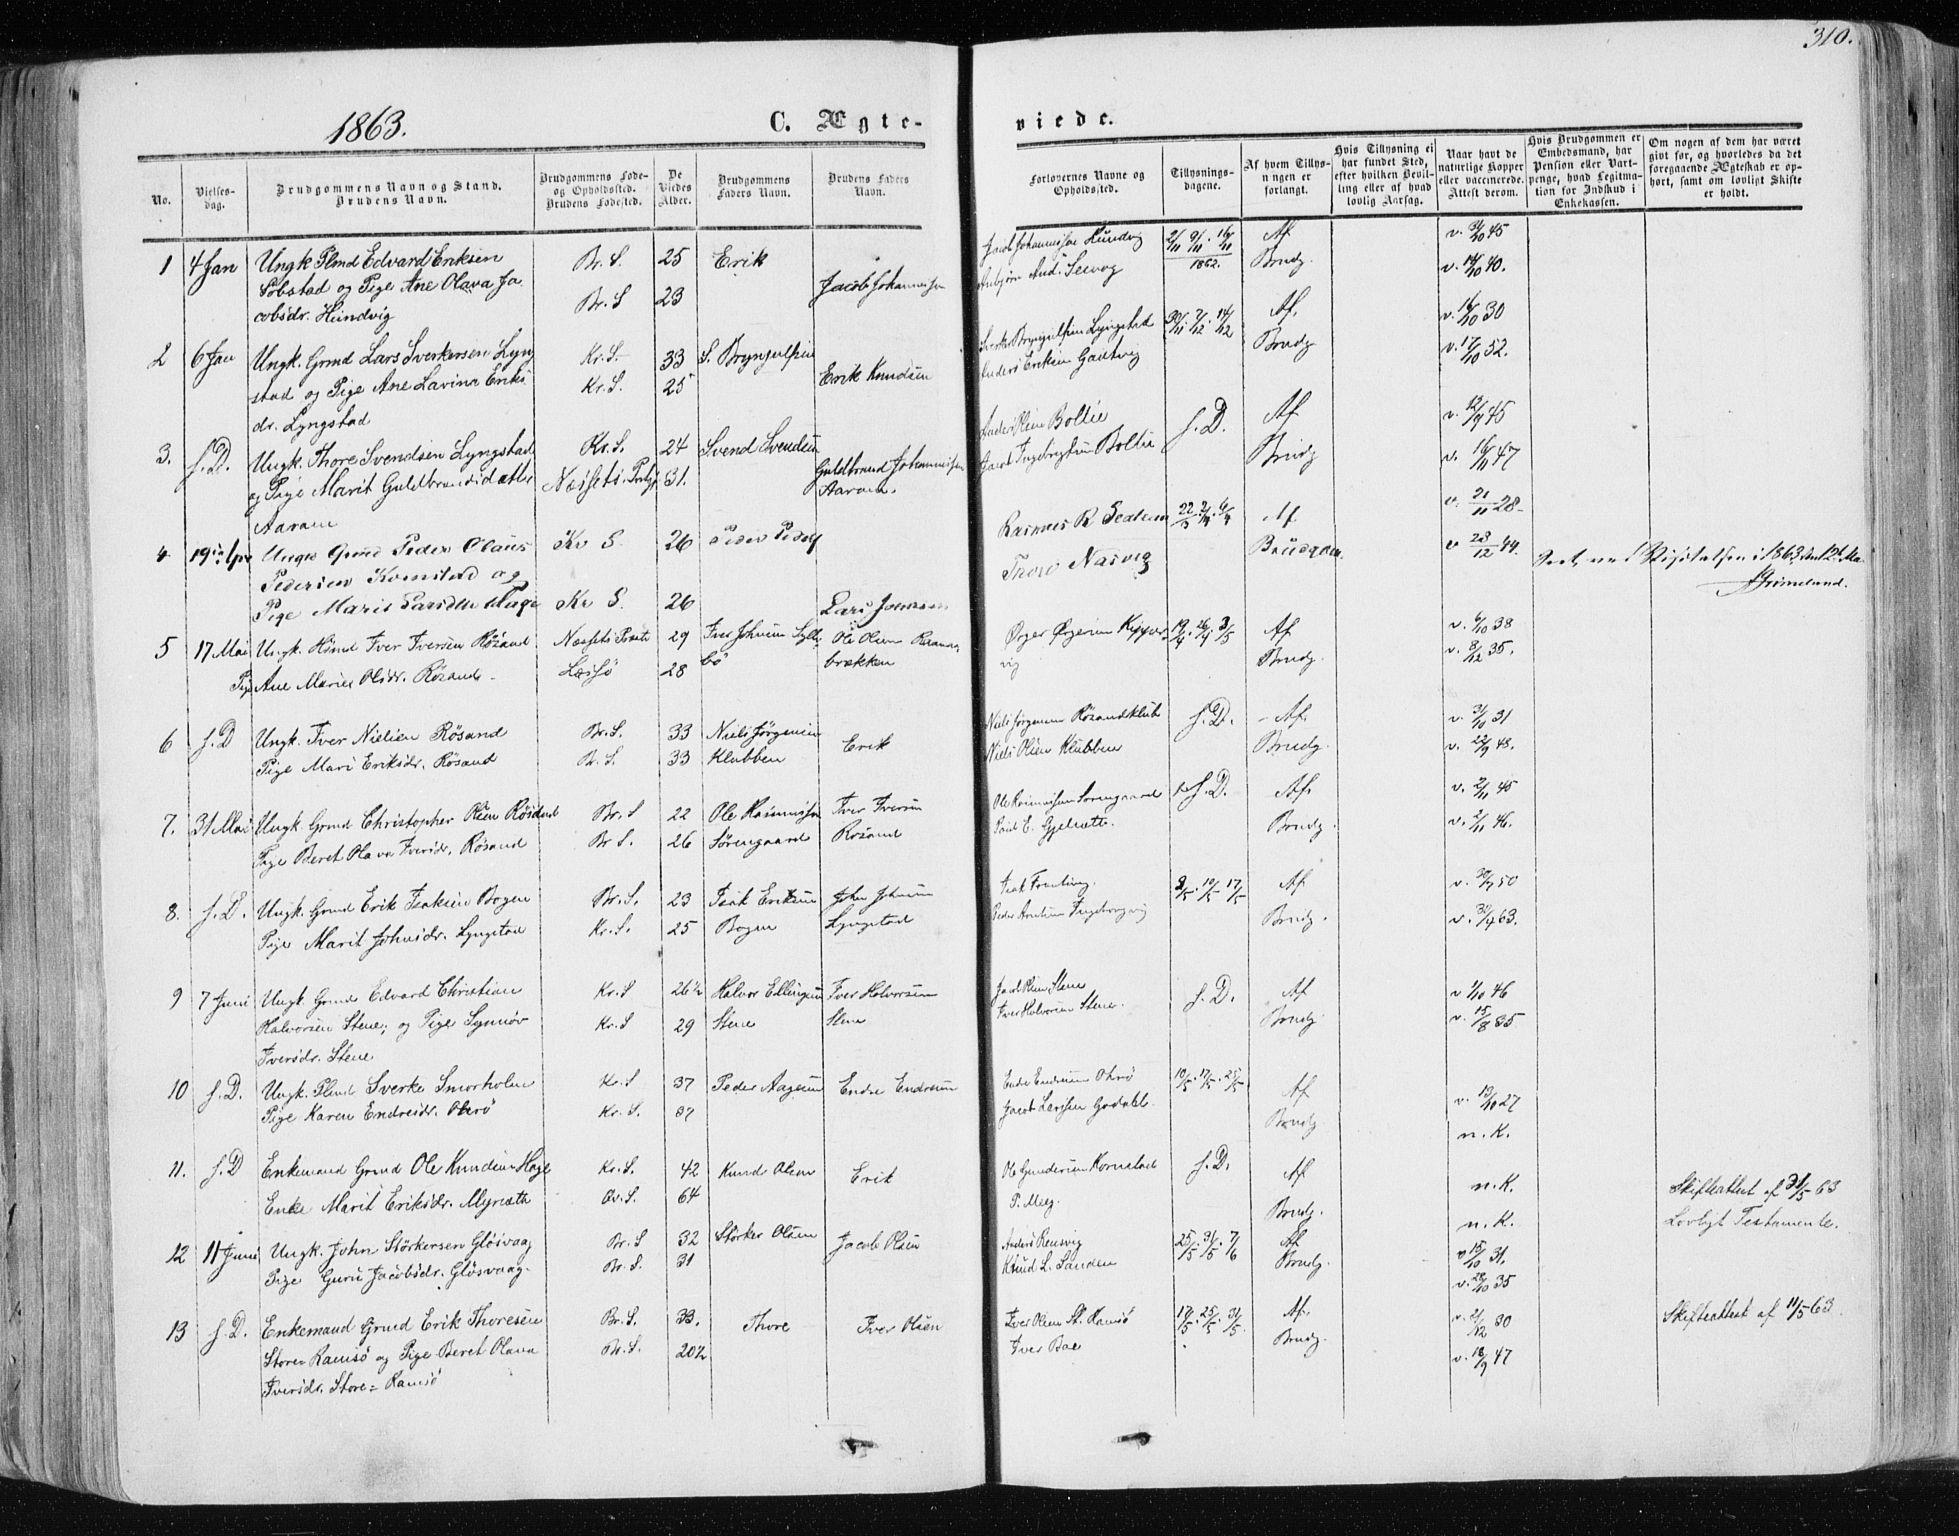 310.
1863.
C. Ægte-
viede.
No.
Vielses-
dag.
Brudgommens Navn og Stand.
Brudens Navn.
Brudgommens Føde-
og Opholdssted.
Brudens Fødested.
De
Viedes
Alder.
Brudgommens
Faders Navn.
Brudens Faders
Navn.
Forlovernes Navne og
Opholdssted.
Tillysnings-
dagene.
Af hvem Tillys-
ningen er
forlangt.
Hvis Tillysning ei
har fundet Sted,
efter hvilken Bevil-
ling eller af hvad
lovlig Aarsag.
Naar havt de
naturlige Kopper
eller vaccinerede.
Attest derom.
Hvis Brudgommen er
Embedsmand, har
Pension eller Vart-
penge, hvad Legitima-
tion for Indskud i
Enkekassen.
Om nogen af dem har været
givt før, og hvorledes da det
foregaaende Ægteskab er op-
hørt, samt om lovligt Skifte
er holdt.
1 4 Jan Ungk. Plmd Edvard Eriksen Br. S. 25 Erik
Sobstad og Pige Ane Olava Ja
cobsdr. Hundvig Br. S 23 Jacob Johannessen
Jacob Johannessen Hundvig 2/11 9/11 16/11 1862. Af Brudg. v. 45
v. 14/10 40.
2 6 Jan Ungk. Grmd Lars Sverkersen Lyng Kr. S. 33 S. Brynjulfsen
stad og Pige Ane Lavina Eriks Kr. S. 25 Erik Knudsen
dr. Lyngstad
Sverke Brynjulfsen Lyngstad 30/11 7/12 14/12 Af. Brudg v. 16/10 30
Anders Eriksen Gautvig v. 17/10 52.
3. s. D. Ungk. Thore Svendsen Lyngstad Kr. S. 24 Svend Svendsen
og Pige Marit Guldbrandsdatter Næssets Prstgj 31. Guldbrand Johannessen
Aaram Aaram.
Olsen Boltie s. D. Af v. 12/9 45
Jacob Ingebrigtsen Boltie Brudg v. 16/11 47
4 19de Apr Ungk Grmd Peder Olaus Kr S. 26 Peder Peders
Pedersen Kornstad og
Pige Marit Larsdtr Hage Kr S. 26 Lars Jonsen
Rasmus R Sedlem 22/3 2/4 6/4 Af v. 21/11 28
Thore Nasvig Brudgom. v 23/12 44. Seet ved Visitatsen i 1863 den 12t Ma
Grimelund.
5 17 Mai Ungk. Hsmd Iver Iversen Røsand Næssets Prstg 29 Iver Johnsen Sylte Ole Olsen
bø brækken
Pige Ane Marie Olsdr. Røsand Lesjø 28
Ørger Ørgersen 19/4 26/4 3/5 Af v. 6/10 38
vig Brudg. v. 8/12 35.
6 s. D Ungk. Iver Nielsen Røsand Br. S. 33 Niels Jørgensen Erik
Pige Mari Eriksdr. Røsand Br. S. 33 Klubben
Niels Jørgensen Røsandklub s. D. Af. v. 31/10 31
Niels Olsen Klubben Brudg. v. 22/9 48.
7. 31 Mai Ungk. Grmd Christopher Olsen Røsand Br. S 22 Ole Rasmussen Iver Iversen
Pige Beret Olava Iversdr. Røsand Br S. 26 Sørengaard Rosand
Ole Rasmussen Sørengaard s. D. Af. v. 2/11 45
Poul E. Gjelsætte Brudg. v. 2/11 46.
8. s. D. Ungk. Grmd Erik Isaksen Bogen Br. S. 23 Isak Eriksen John Johnsen
Pige Marit Johnsdr. Lyngstad Kr. S. 25 Bogen Lyngstad
Isak 3/5 10/5 17/5 Af v. 30/7 50
Peder Ingeborgvig Brudg. v. 30/4 63.
9 7 Juni Ungk. Grmd Edvard Christian Kr. S 26 1/2 Halvor Ellingsen Iver Halvorsen
Halvorsen Stene, og Pige Synnøv Kr. S 29 Stene Stene
Iversdr. Stene
Jacob Olsen Stene s. D. Af v 1/10 46
Iver Halvorsen Stene. Brudg v. 15/8 35
10 s. D. Ungk. Plmd Sverke Smorholm Kr. S 37 Peder Aagesen Endre Endresen
Pige Karen Endresdr. Ohrø Kr. S. 37
Endre Endresen Ohrø 10/5 17/5 25/5 Af v. 13/10 27
Jacob Larssen Godahl. Brudg n. K.
11. s. D Enkemand Grmd Ole Knudsen Hage Kr. S. 42 Knud Olsen Erik
Enke Marit Eriksdr. Myrsæth Øv. S. 64
Ole Gundersen Kornstad s. D. Af n. K. Skifteattest af 31/5 63
P. Møeg Brudg. n. K. Lovligt Testamente.
12 11 Juni Ungk. John Størkersen Gløsvaag Br. S 32 Størker Olsen Jacob Olsen
Pige Guru Jacobsdr. Gløsvaag. Br. S. 31
Anders Rensvig 25/5 31/5 7/6 Af v 15/10 31.
Knud L. Sanden Brudg. v. 28/10 35
13 s. D. Enkemand Grmd Erik Thoresen Br. S. 33. Thore Iver Olsen
Store Ramsø og Pige Beret Olava Br. S. 20 1/2
Iversdr. Store=Ramsø
Iver Olsen St. Ramsø 17/5 25/5 31/5 Af. v. 21/12 30 Skifteattest af 11/5 63.
Iver Bae Brudg. v. 18/9 47